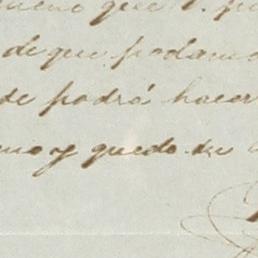 que V.
de que podamo
de podrá hacer
mo y quedo su